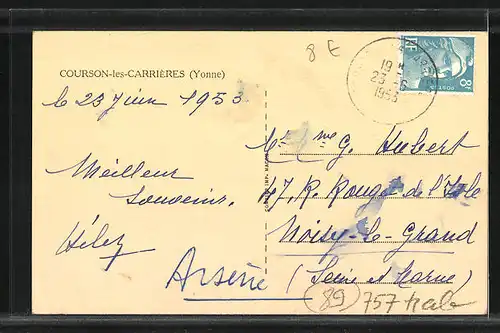 8 €
RF
8F
POSTES
19 H
23 - 6
1953
COURSON-les-CARRIÈRES (Yonne)
le 23 Juin 1953
Mr Mme G. Hubert
Meilleur
Souvenir.
47, R. Rouget de l'Isle
Noisy-le-Grand
Arsène (Seine et Marne)
(89) 757